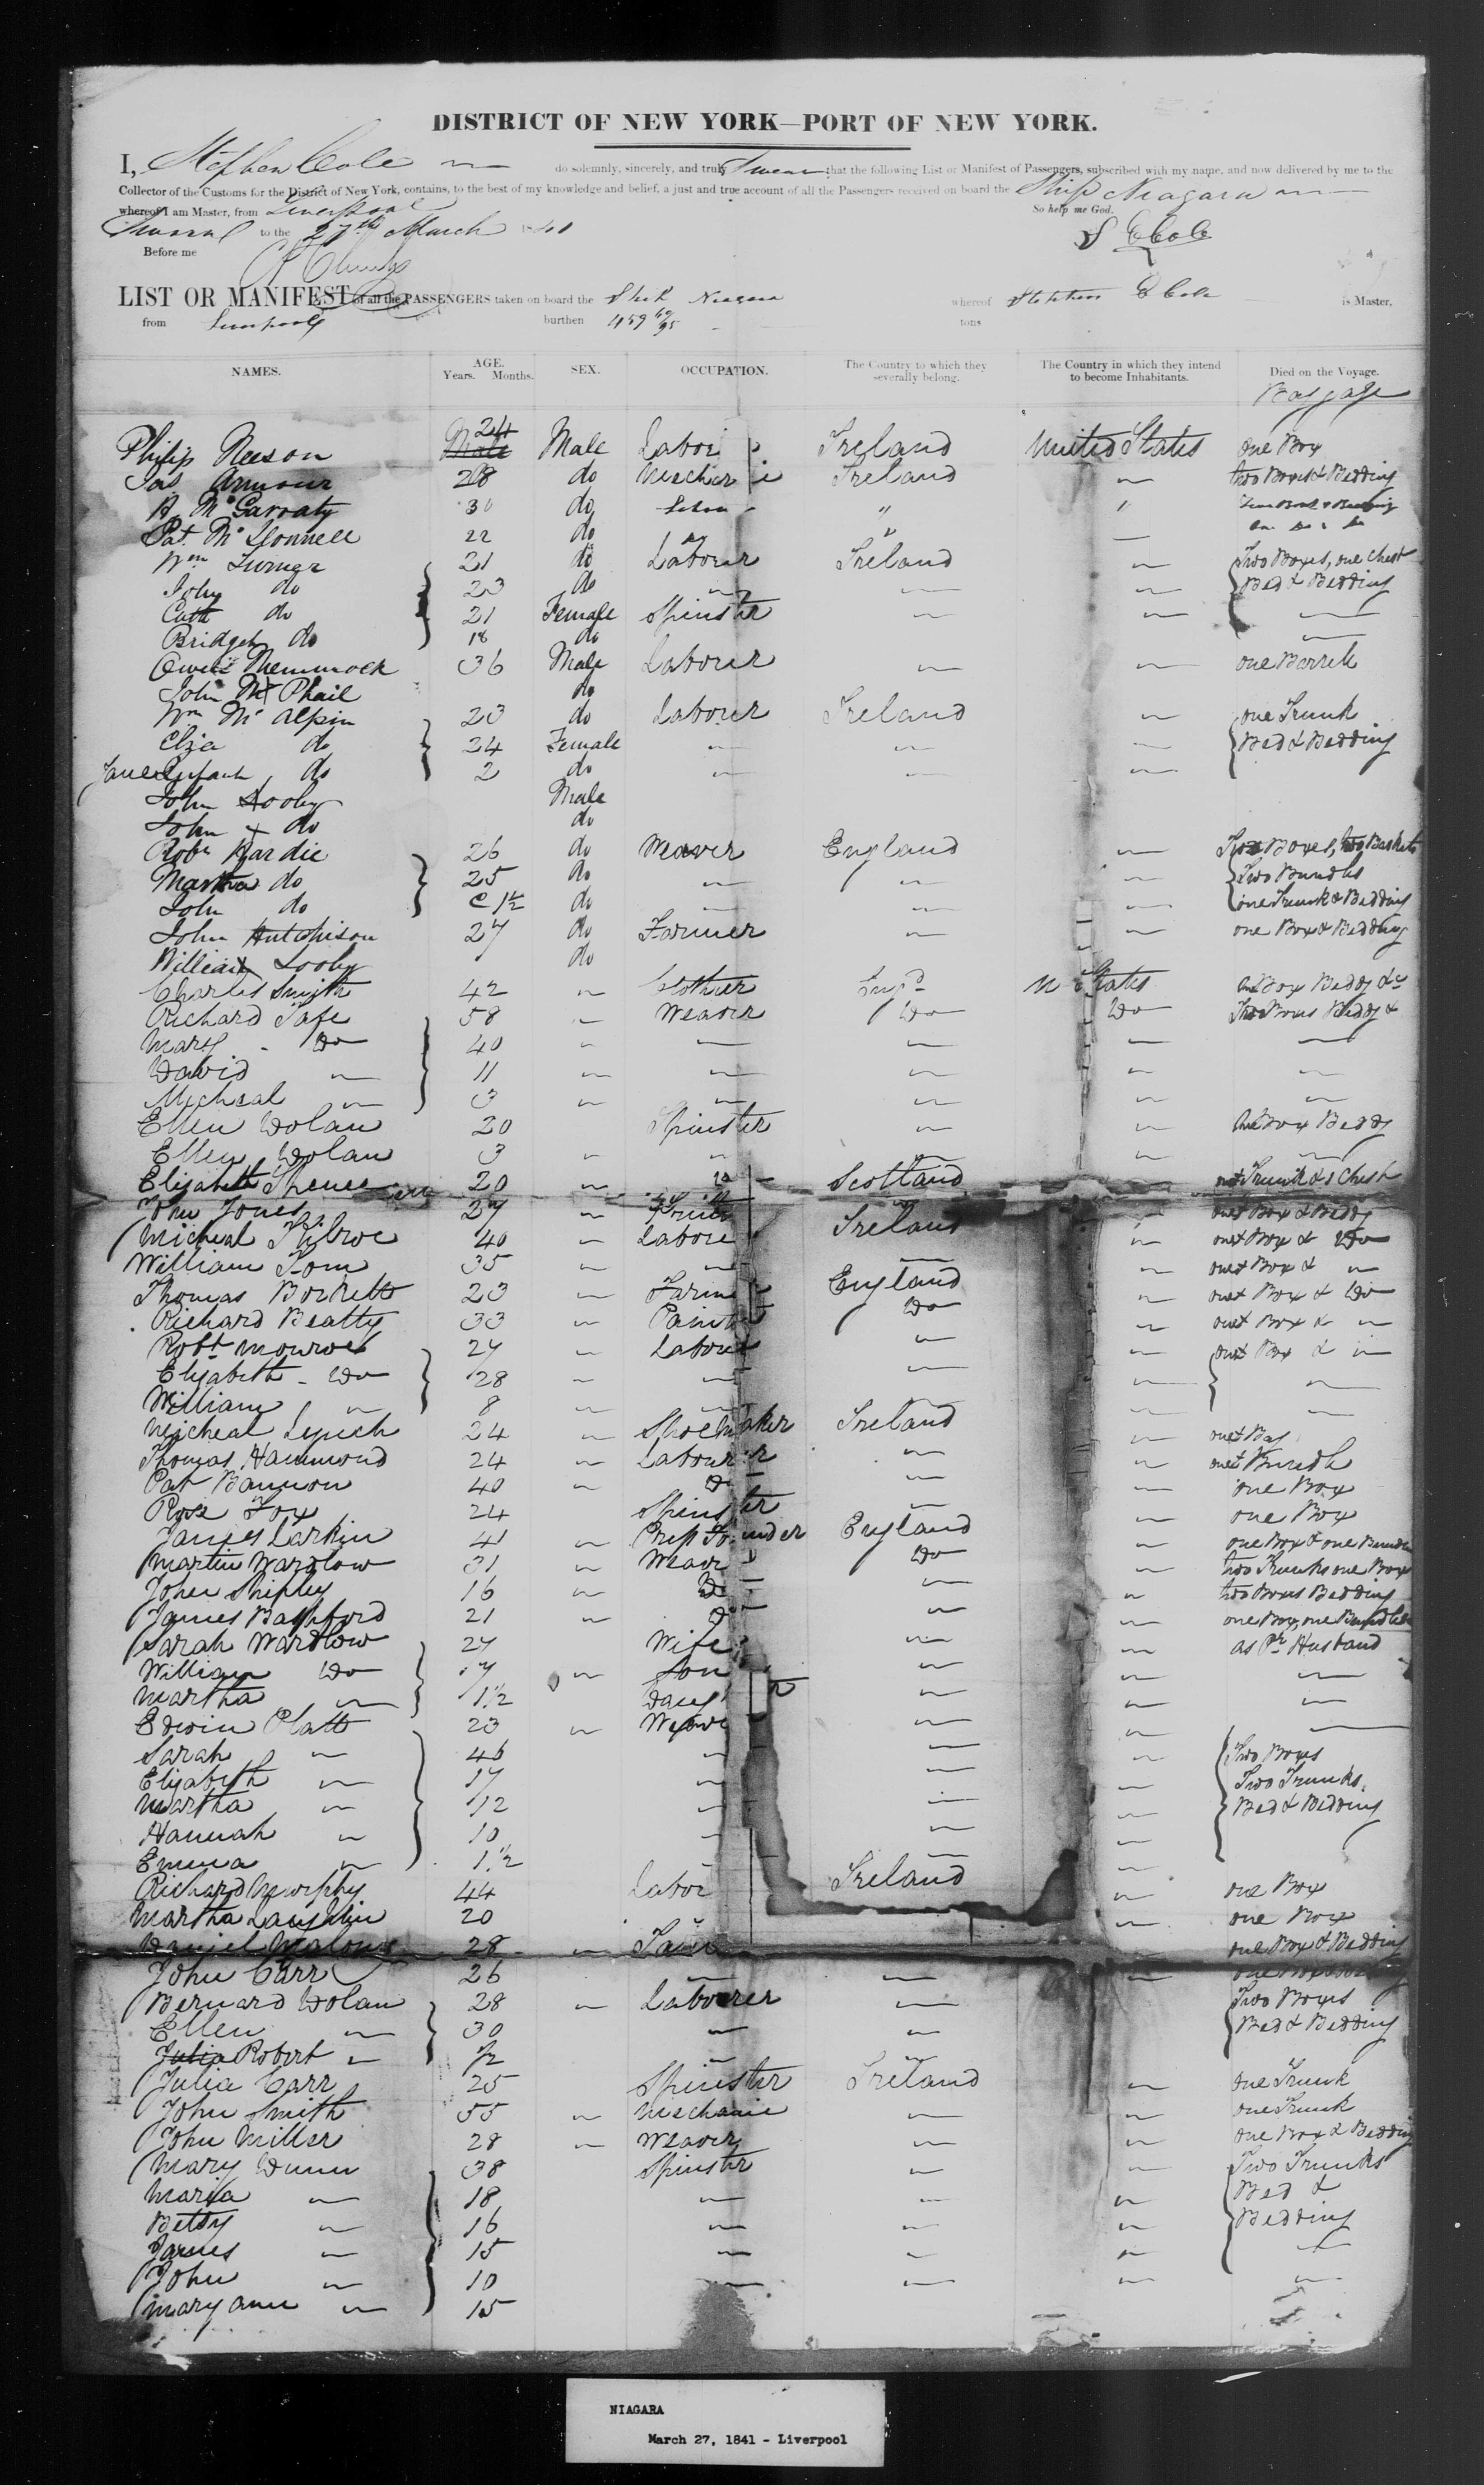 DISTRICT OF NEW YORK—PORT OF NEW YORK.
I, Stephen Cole do solemnly, sincerely, and truly Swear that the following List or Manifest of Passengers, subscribed with my name, and now delivered by me to the
Collector of the Customs for the District of New York, contains, to the best of my knowledge and belief, a just and true account of all the Passengers received on board the Ship Niagara
whereof I am Master, from Liverpool
So help me God.
to the 27th March 1841
Before me
S Cole
LIST OR MANIFEST of all the PASSENGERS taken on board the Ship Niagara whereof Stephen Cole is Master,
from Liverpool burthen 459 tons
NAMES. AGE. Years. Months. SEX. OCCUPATION. The Country to which they severally belong. The Country in which they intend to become Inhabitants. Died on the Voyage.
Baggage
Philip Neeson 24 Male Labor Ireland United States one Box
Jas Armour 28 do Mechanic Ireland — two Boxes & Bedding
30 do " "
Pat. Mc Donnell 22 do " —
Wm Turner 21 do Labour Ireland — Two Boxes, one Chest
John do 23 do — — — Bed & Bedding
Cath do 21 Female Spinster — — —
Bridget do 18 do —
Owen 36 Male Labourer — — one Barrel
John Mc Phail do
Wm Mc Alpin 23 do Labourer Ireland — one Trunk
Eliza do 24 Female — — — Bed & Bedding
Jane Infant do 2 do — — —
John Looby Male
John do do
Robt Hardie 26 do Weaver England — Two Boxes, two Baskets
Martha do 25 do — — — Two Bundles
John do 1½ do — — — one Trunk & Bedding
John Hutchison 27 do Farmer — — one Box & Bedding
William Looby do
Charles Smith 42 — Clothier Engd U States one Box Beddg &c
Richard Tafe 58 — Weaver Do Do Two Boxes Beddg &
Mary Do 40 — — — — —
David — 11 — — — — —
Micheal — 3 — — — — —
Ellen Dolan 20 Spinster — — one Box Beddg
Ellen Dolan 3 — — — — —
Elizabeth Spence 20 — Scotland — one Trunk & 1 Chest
John Jones 27 — Ireland — one Box & Beddg
Micheal Kilroe 40 — Labore — one Box & Do
William Tom 35 — — — — one Box & —
Thomas 23 — Farm England — one Box & Do
Richard Beatty 33 — Paint Do — one Box & —
Robt Monroe 27 — Labour — — one Box & —
Elizabeth Do 28 — — — — —
William — 8 — — — — —
Micheal Lynch 24 — Shoemaker Ireland — one Bag
Thomas Hammond 24 — Labourer — — one Bundle
Pat Bannon 40 — Do — — one Box
Rose Fox 24 Spinster — — one Box
James Larkin 41 — England — one Box & one Bundle
Martin Wardlow 31 — Weaver Do — two Trunks one Box
John Shipley 16 — Do — — two Boxes Bedding
James Bashford 21 — Do — — one Box, one Bundle
Sarah Wardlow 27 Wife — — as Pr Husband
William Do 7 — Son — — —
Martha — 1½ Daug — — —
Edwin Platt 23 — Weave — — —
Sarah — 46 — — — Two Boxes
Elizabeth — 17 — — — Two Trunks
Martha — 12 — — — Bed & Bedding
Hannah — 10 — — —
Emma — 1½ — — —
Richard Murphy 44 Labor Ireland — one Box
Martha Laughlin 20 — one Box
Daniel Malone 28 — one Box & Bedding
John Carr 26 — — —
Bernard Dolan 28 — Labourer — Two Boxes
Ellen — 30 — — Bed & Bedding
Julia Robert — ½ — —
Julia Carr 25 Spinster Ireland — one Trunk
John Smith 55 — Mechanic — — one Trunk
John Miller 28 — Weaver — — one Box & Bedding
Mary Dunn 38 Spinster — — Two Trunks
Maria — 18 — — — Bed &
Betsy — 16 — — — Bedding
James — 15 — — — —
John — 10 — — — —
Mary Ann — 15
NIAGARA
March 27, 1841 - Liverpool